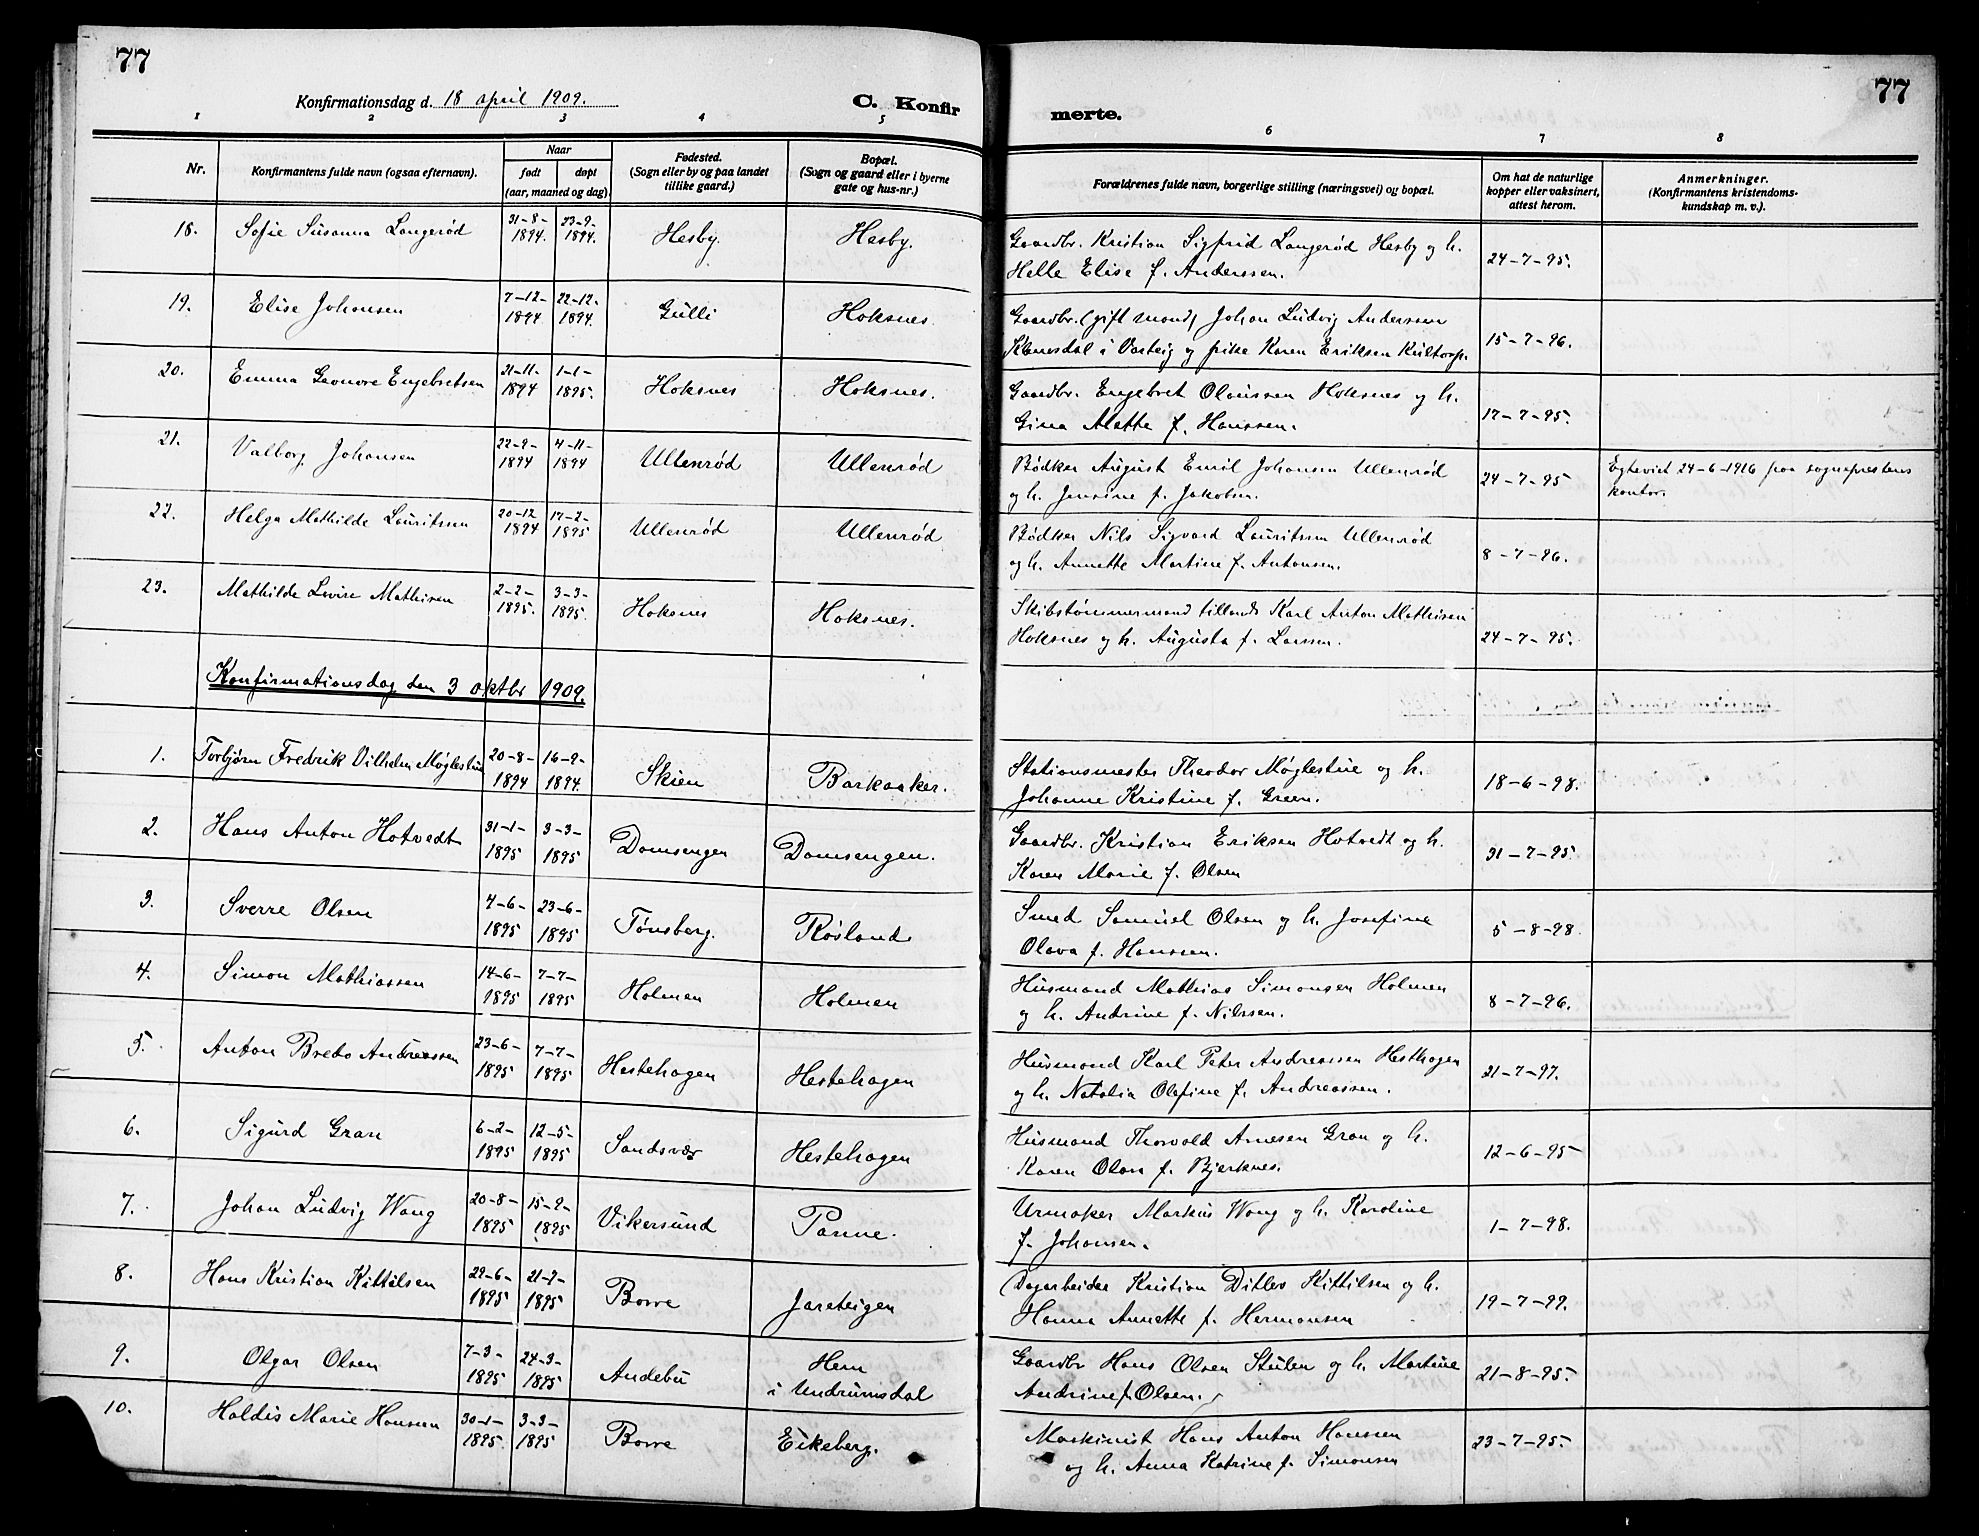 77
77
Konfirmationsdag d. 18 april 1909.
C. Konfir
merte.
1 2 3 4 5 6 7 8
Nr.
Konfirmantens fulde navn (ogsaa efternavn).
Naar
født døpt
(aar, maaned og dag)
Fødested.
(Sogn eller by og paa landet
tillike gaard.)
Bopæl.
(Sogn og gaard eller i byerne
gate og hus-nr.)
Forældrenes fulde navn, borgerlige stilling (næringsvei) og bopæl.
Om hat de naturlige
kopper eller vaksinert,
attest herom.
Anmerkninger.
(Konfirmantens kristendoms-
kundskap m. v.).
18. Sofie Susanna Langerød 31-8-1894. 23-9-1894. Hesby. Hesby. Gaardbr. Kristian Sigfrid Langerød Hesby og h.
Helle Elise f. Anderssen. 24-7-95.
19. Elise Johansen 7-12-1894 22-12-1894. Gulli Hoksnes. Gaardbr. (gift mand) Johan Ludvig Anderssen
i Varteig og pike Karen Eriksen 15-7-96.
20. Emma Leonore Engebretsen 21-11-1894 1-1-1895. Hoksnes Hoksnes. Gaardbr. Engebret Olaussen Hoksnes og h.
Gina Mathea f. Hanssen. 17-7-95.
21. Valborg Johansen 22-9-1894 4-11-1894 Ullenrød Ullenrød Bødker August Emil Johansen Ullenrød
og h. Jensine f. Jakobsen. 24-7-95 Egteviet 24-6-1916 paa sogneprestens
kontor.
22. Helga Mathilde Lauritssen 20-12-1894 17-2-1895 Ullenrød Ullenrød Bødker Nils Sigvard Lauritssen Ullenrød
og h. Annette Martine f. Antonsen. 8-7-96.
23. Mathilde Lovise Mathisen 2-2-1895. 3-3-1895. Hoksnes Hoksnes. Skibstømmermand tillands Karl Anton Mathisen
Hoksnes og h. Augusta f. Larssen. 24-7-95.
Konfirmationsdag den 3 oktbr 1909.
1. Torbjørn Fredrik Vilhelm Møglestue 20-8-1894 16-9-1894. Skien Barkaaker. Stationsmester Theodor Møglestue og h.
Johanne Kristine f. Green. 18-6-98.
2. Hans Anton Hotvedt 31-1-1895 3-3-1895 Domsengen Domsengen. Gaardbr. Kristian Eriksen Hotvedt og h.
Karen Marie f. Olsen 31-7-95.
3. Sverre Olsen 4-6-1895 23-6-1895 Tønsberg. Røsland Smed Samuel Olsen og h. Josefine
Olava f. Hanssen. 5-8-98.
4. Simon Mathiassen 14-6-1895 7-7-1895 Holmen Holmen Husmand Mathias Simonsen Holmen
og h. Andrine f. Nilssen. 8-7-96.
5. Anton Bredo Andreassen 23-6-1895 7-7-1895 Hestehagen Hestehagen Husmand Karl Peter Andreassen Hesthagen
og h. Natalia Olefine f. Andreassen. 21-7-97.
6. Sigurd Gran 6-2-1895 12-5-1895 Sandsvær Hestehagen Husmand Thorvald Arnesen Gran og h.
Karen Olava f. Bjerknes. 12-6-95
7. Johan Ludvig Wang 20-8-1895 15-9-1895 Vikersund Panne. Urmaker Markus Wang og h. Karoline
f. Johansen. 1-7-98.
8. Hans Kristian Kittilsen 29-6-1895 21-7-1895 Borre Jareteigen Dagarbeider Kristian Ditlev Kittilsen og h.
Hanna Annette f. Hermansen 19-7-99.
9. Olgar Olsen 7-3-1895 24-3-1895 Andebu Hem
i Undrumsdal Gaardbr Hans Olsen Stulen og h. Martine
Andrine f. Olsen. 21-8-95.
10. Haldis Marie Hansen 30-1-1895. 3-3-1895 Borre Eikeberg. Maskinist Hans Anton Hanssen
og h. Anna Katrine f. Simonsen 23-7-95.